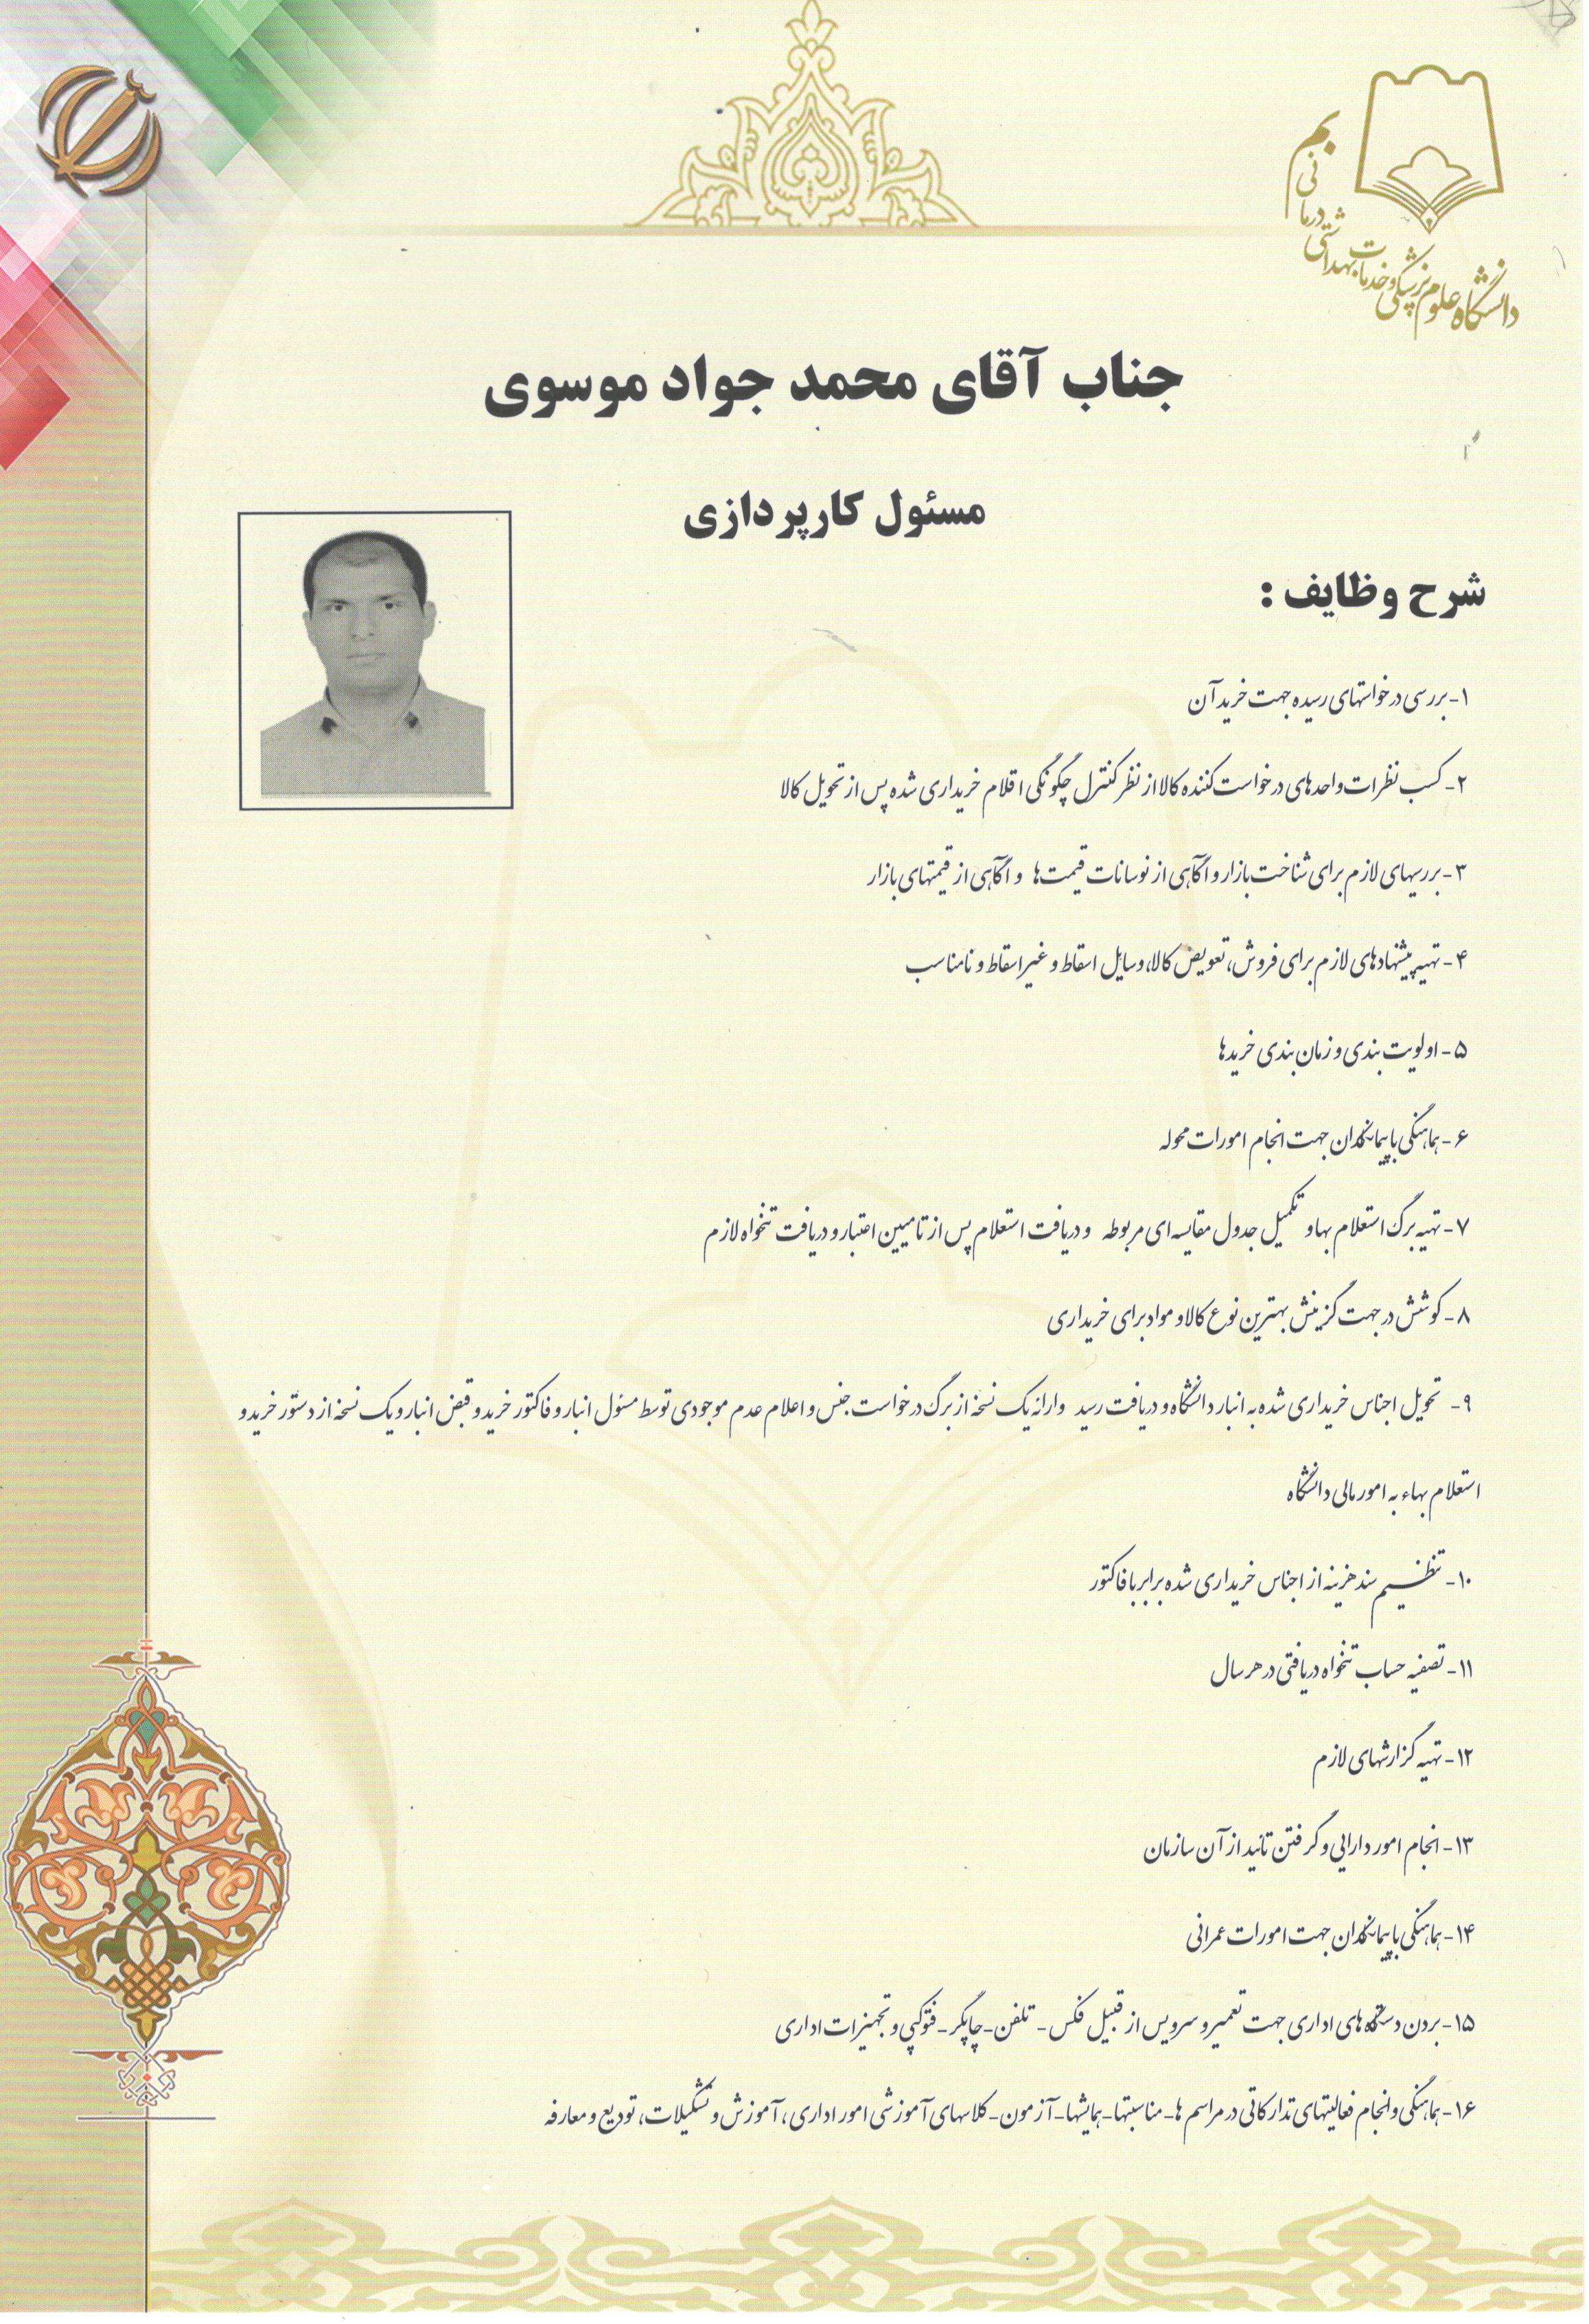 دانشگاه علوم پزشکی و خدمات بهداشتی درمانی بم
جناب آقای محمد جواد موسوی
مسئول کارپردازی
شرح وظایف :
۱- بررسی درخواستهای رسیده جهت خرید آن
۲- کسب نظرات واحدهای درخواست کننده کالا از نظر کنترل چگونگی اقلام خریداری شده پس از تحویل کالا
۳- بررسیهای لازم برای شناخت بازار و آگاهی از نوسانات قیمت ها و آگاهی از قیمتهای بازار
۴- تهیه پیشنهادهای لازم برای فروش، تعویض کالا، وسایل اسقاط و غیراسقاط و نامناسب
۵- اولویت بندی و زمان بندی خریدها
۶- هماهنگی با پیمانکاران جهت انجام امورات محوله
۷- تهیه برگ استعلام بها و تکمیل جدول مقایسه ای مربوطه و دریافت استعلام پس از تامین اعتبار و دریافت تنخواه لازم
۸- کوشش در جهت گزینش بهترین نوع کالا و مواد برای خریداری
۹- تحویل اجناس خریداری شده به انبار دانشگاه و دریافت رسید وارائه یک نسخه از برگ درخواست جنس و اعلام عدم موجودی توسط مسئول انبار و فاکتور خرید و قبض انبار و یک نسخه از دستور خرید و
استعلام بهاء به امور مالی دانشگاه
۱۰- تنظیم سند هزینه از اجناس خریداری شده برابر با فاکتور
۱۱- تصفیه حساب تنخواه دریافتی در هر سال
۱۲- تهیه گزارشهای لازم
۱۳- انجام امور دارایی و گرفتن تائید از آن سازمان
۱۴- هماهنگی با پیمانکاران جهت امورات عمرانی
۱۵- بردن دستگاه های اداری جهت تعمیر و سرویس از قبیل فکس - تلفن - چاپگر - فتوکپی و تجهیزات اداری
۱۶- هماهنگی و انجام فعالیتهای تدارکاتی در مراسم ها - مناسبتها - همایشها - آزمون - کلاسهای آموزشی امور اداری ، آموزش و تشکیلات، تودیع و معارفه